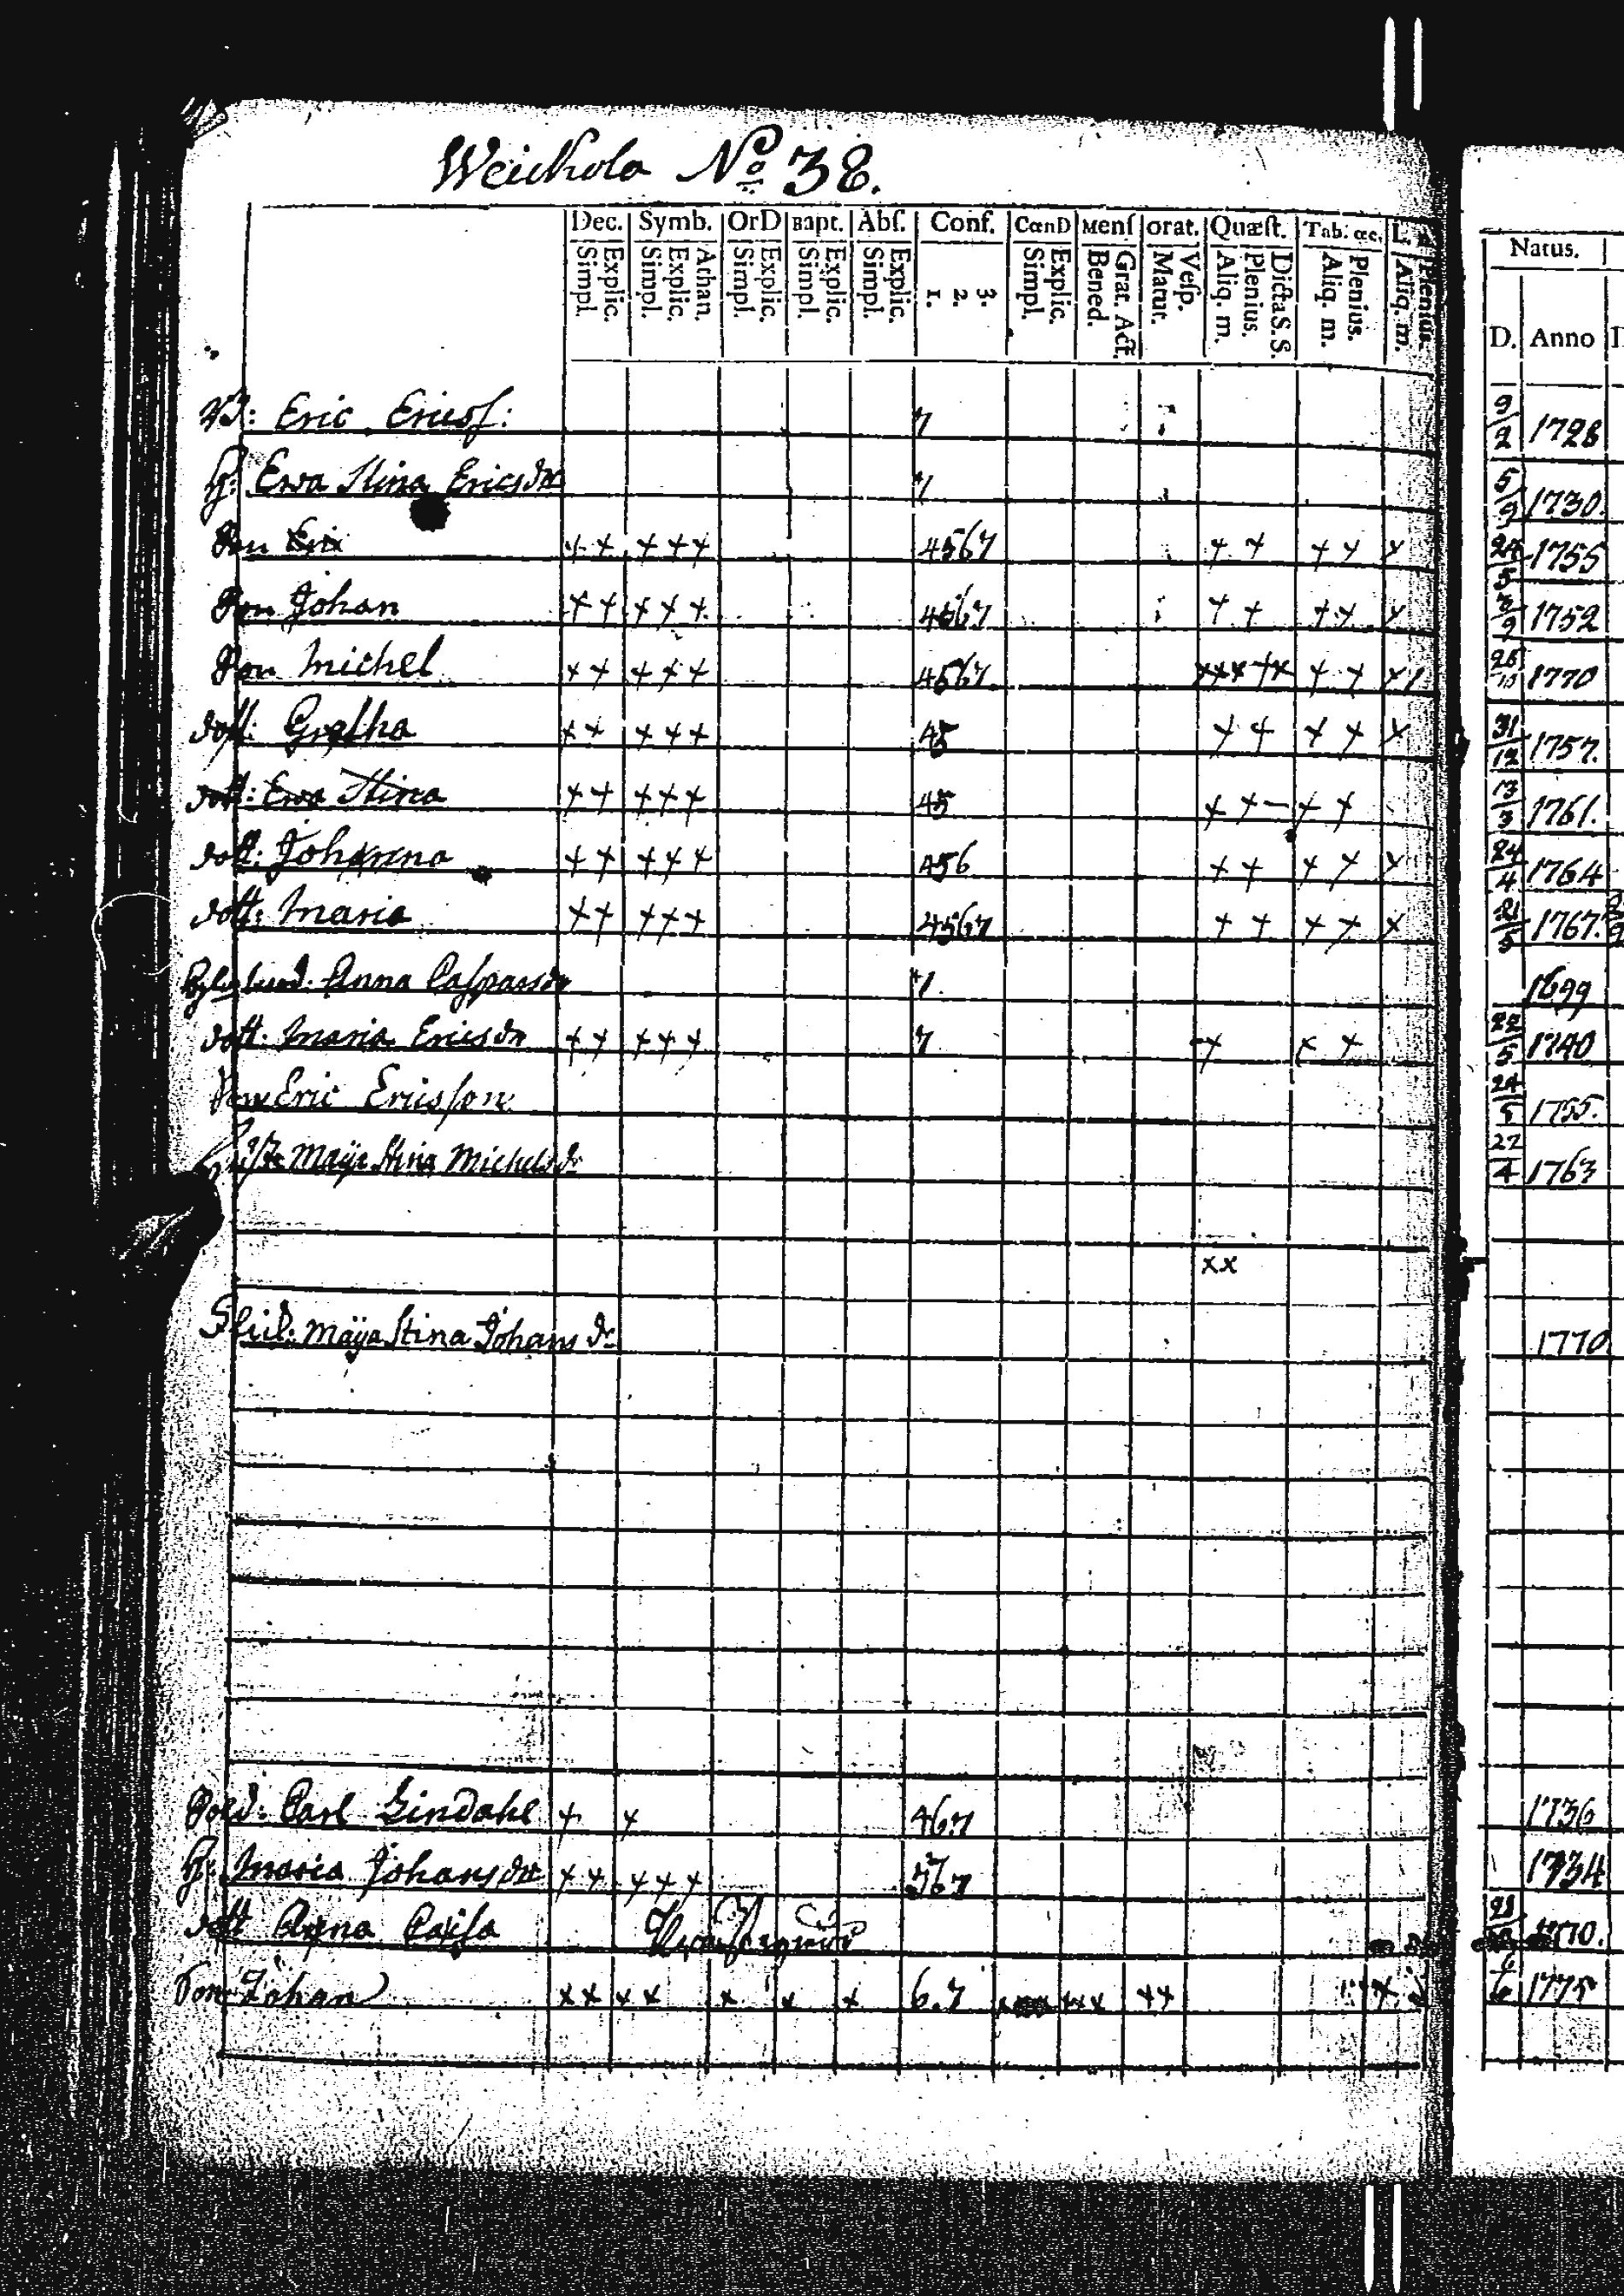 Weickola No 38.
Dec. Symb. OrD Bapt. Abſ. Conf. CœnD Menſ orat. Quæſt. Tab: œc. L.
Simpl. Explic. Simpl. Explic. Athan. Simpl. Explic. Simpl. Explic. Simpl. Explic. 1. 2. 3. Simpl. Explic. Bened. Grat. Act. Matut. Veſp. Aliq. m. Plenius. Dicta S. S. Aliq. m. Plenius. Aliq. m. Plenius.
Natus.
D. Anno
B: Eric Ericsſ: 7 9/2 1728
H: Ewa Stina Ericsdr 7 5/9 1730.
Son Eric ++ +++ 4567 ++ ++ + 24/5 1755
Son Johan ++ +++ 4567 ++ ++ + 1752
Son Michel ++ +++ 4567 ++ 1770
dott: Gretha ++ +++ 45 ++ ++ + 31/12 1757.
dott: Ewa Stina ++ +++ 45 ++– ++ 13/3 1761.
dott: Johanna ++ +++ 456 ++ ++ + 24/4 1764
dott: Maria ++ +++ 4567 ++ ++ + 21/5 1767.
Anna Caspersdr 1699
dott. Maria Ericsdr ++ +++ 7 + ++ 22/5 1740
Son Eric Ericsson 24/5 1755.
Maja Stina Michelsdr 27/4 1763
xx
Maja Stina Johansdr 1770
Sold: Carl Lindahl + + 467 1736
H: Maria Johansdr ++ +++ 567 1734
dott Anna Caisa 1770.
Son Johan xx xx x x x 6.7 xxx ++ 6 1775